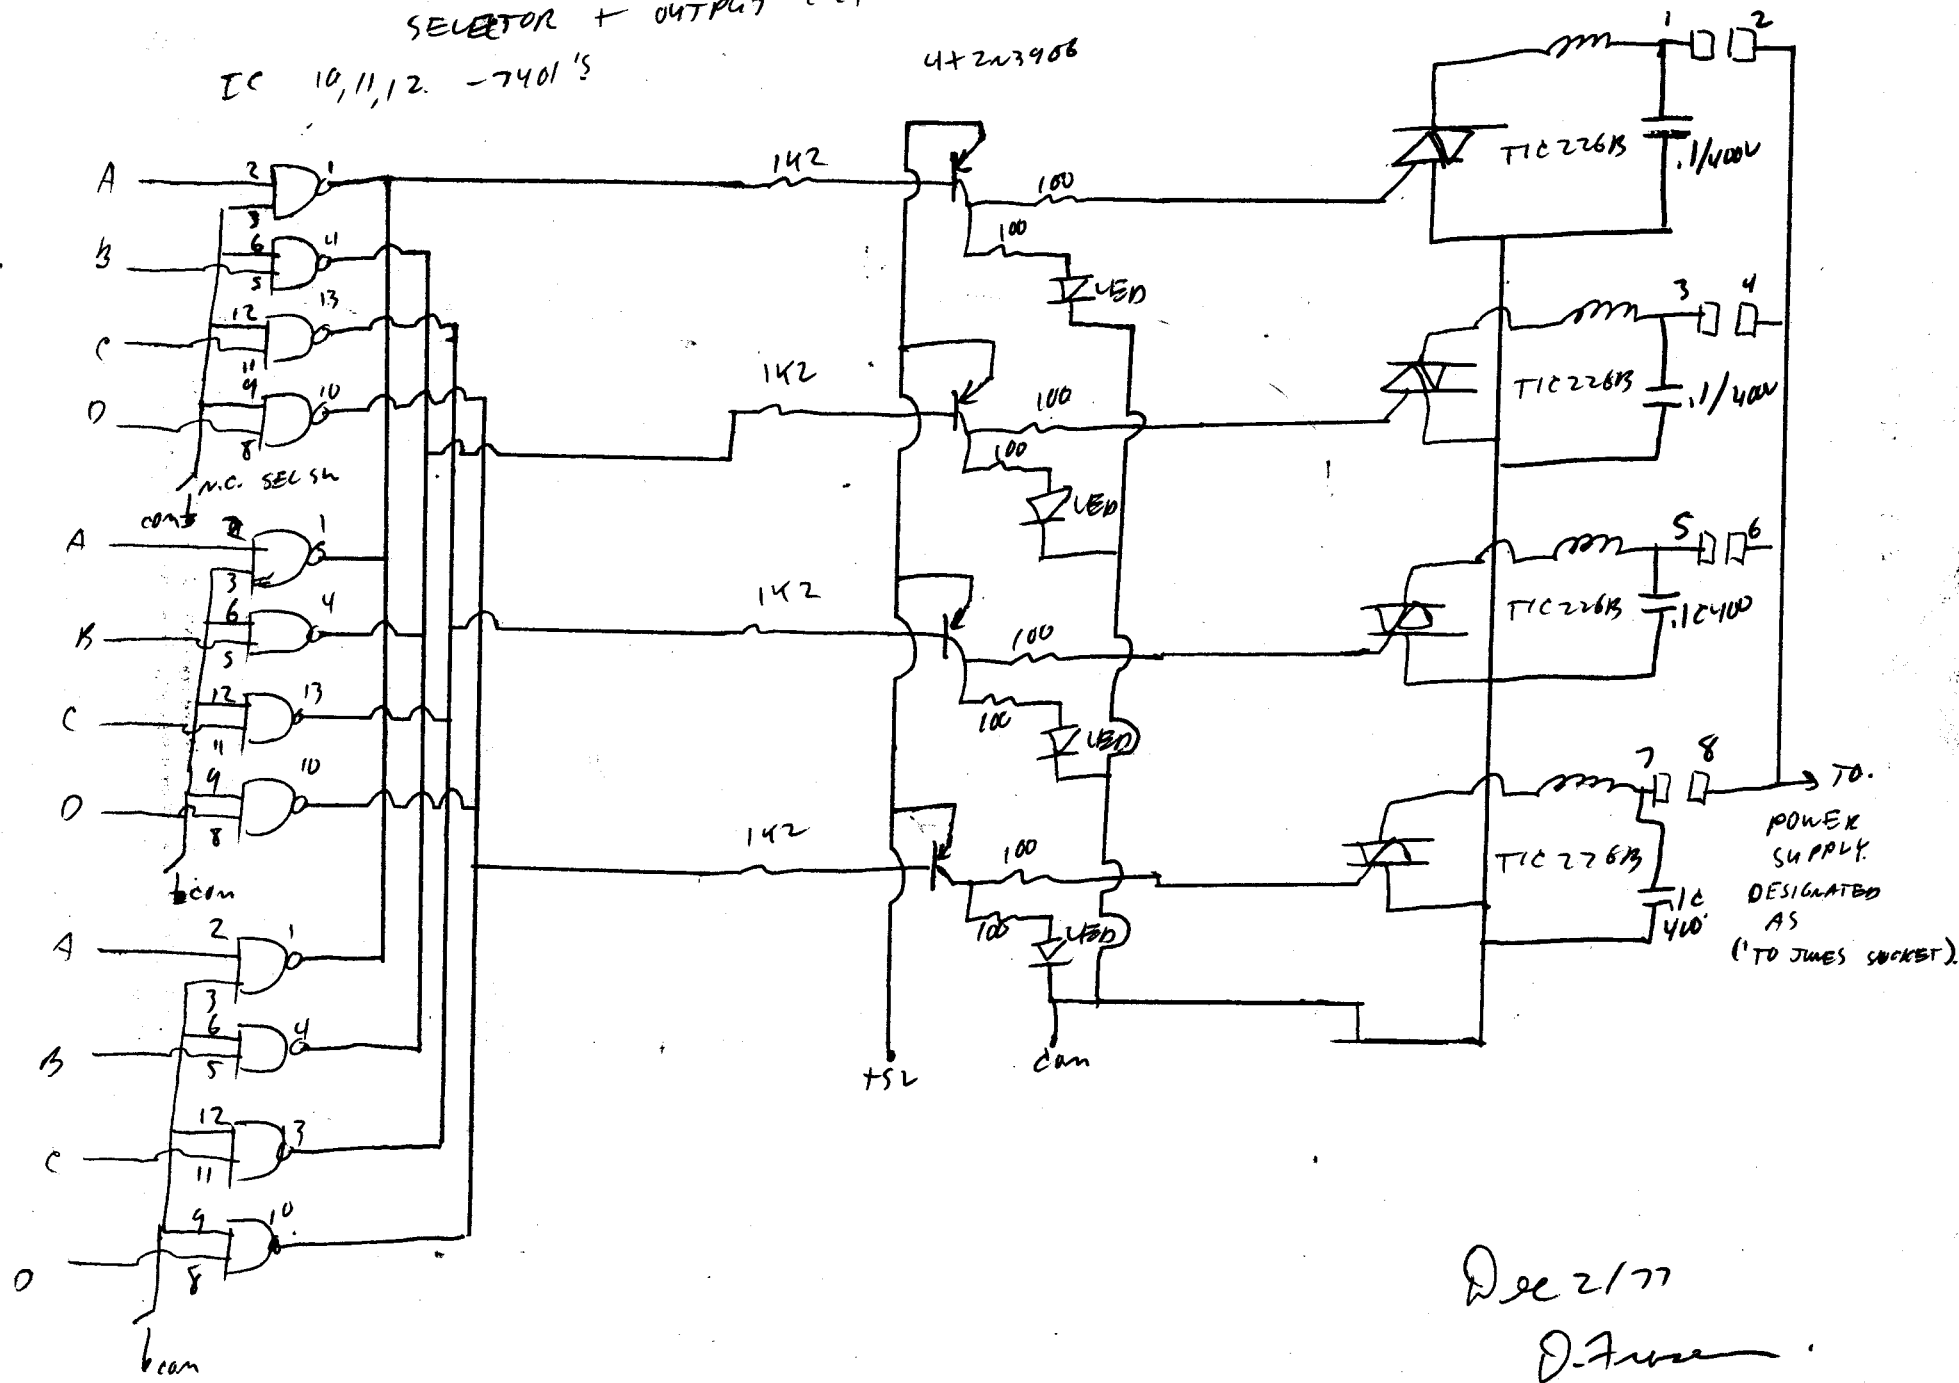 SELECTOR + OUTPUT
IC 10,11,12. -7401's
4+2N3906
A 2 3 1
B 6 5 4
C 12 11 13
D 9 8 10
N.C. SEL SW
A 1
3
B 6 5 4
C 12 11 13
D 9 8 10
A 2 3 1
B 6 5 4
C 12 11 3
D 9 8 10
1K2
100
100
LED
1K2
100
100
LED
1K2
100
100
LED
1K2
100
100
LED
+5V
com
1 2
TIC226B
.1/400V
3 4
TIC226B
.1/400V
5 6
TIC226B
.1C400
7 8
TIC226B
.1C
400
TO.
POWER
SUPPLY.
DESIGNATED
AS
('TO JONES SOCKET).
Dec 2/77